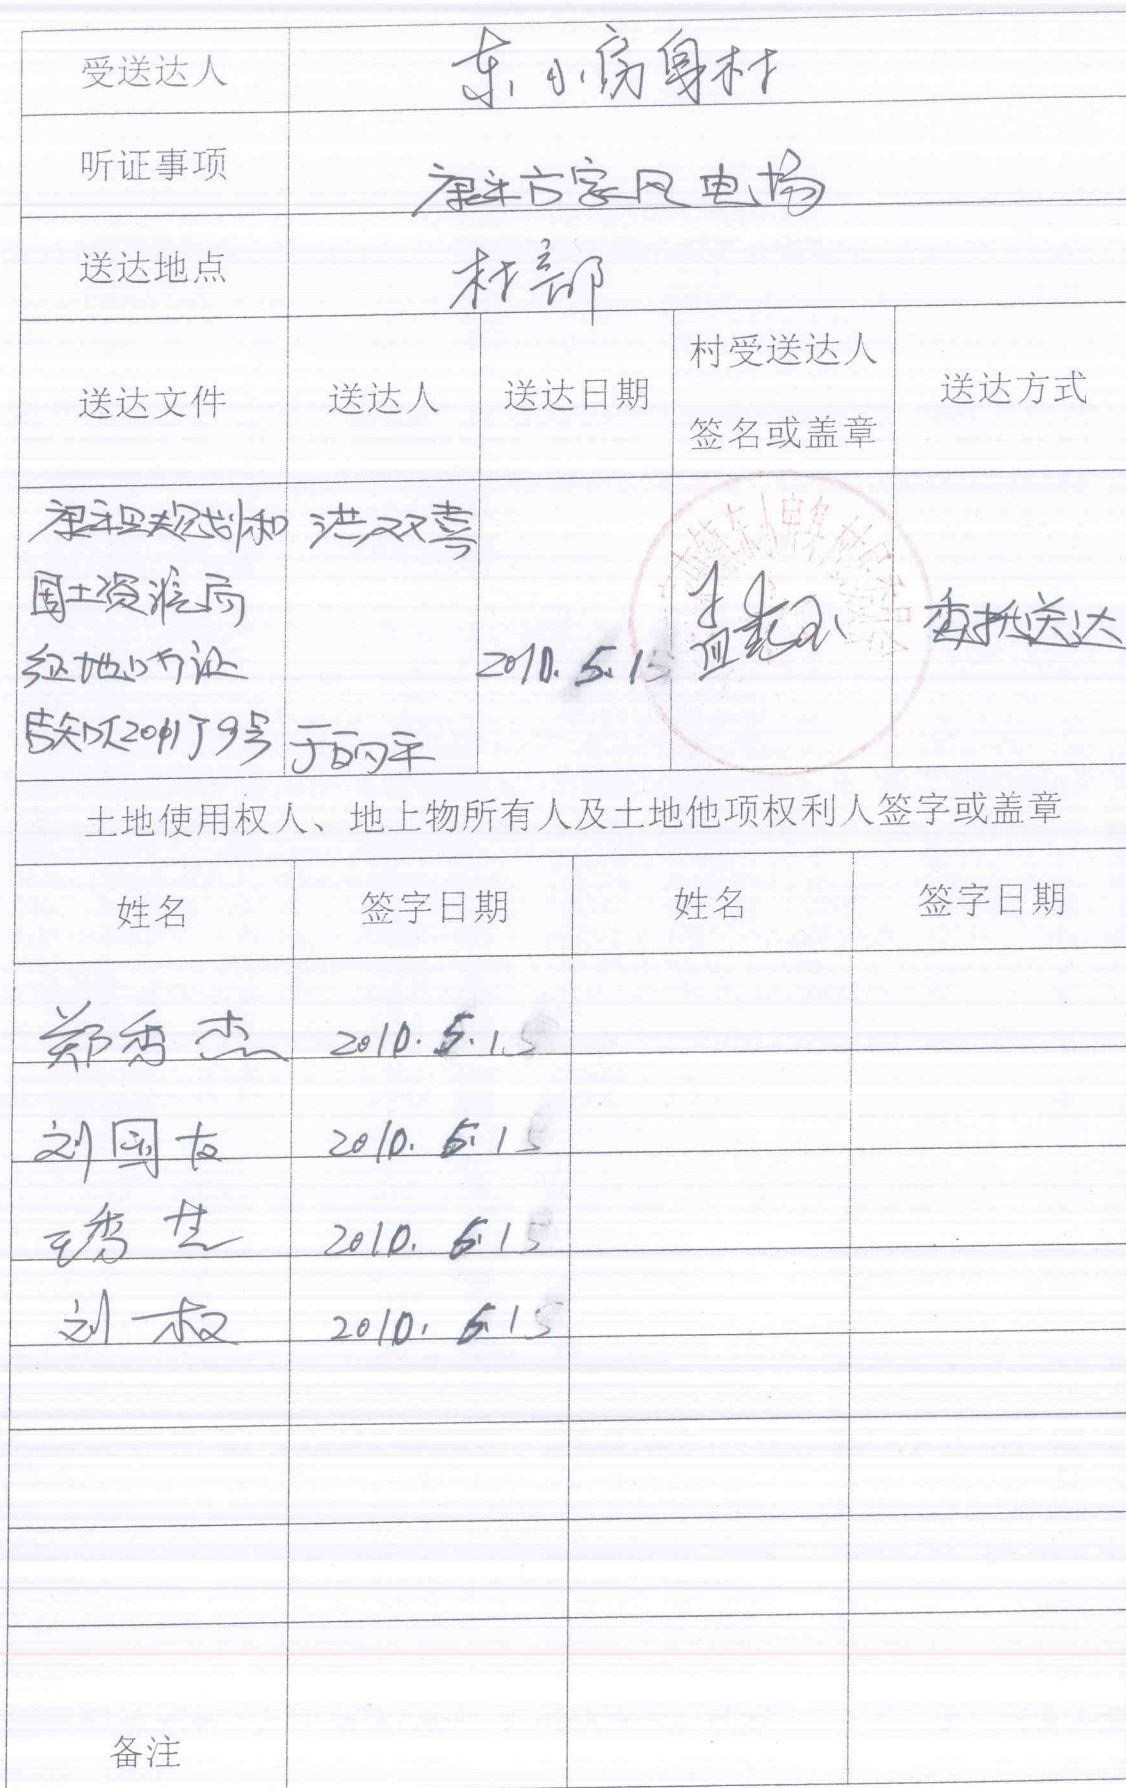 受送达人 东小房身村
听证事项 康平方家风电场
送达地点 村部
送达文件 送达人 送达日期 村受送达人 签名或盖章 送达方式
康平县规划和 洪双喜
国土资源局
征地听证 2010.5.15 委托送达
告知 9号 于丽平
土地使用权人、地上物所有人及土地他项权利人签字或盖章
姓名 签字日期 姓名 签字日期
郑秀杰 2010.5.15
刘国友 2010.5.15
王秀芝 2010.5.15
刘权 2010.5.15
备注